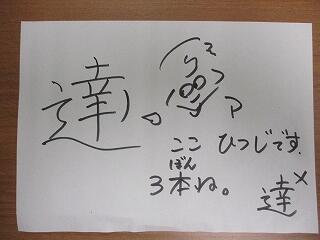 達
ここ ひつじです.
ぼん
3本ね。
達